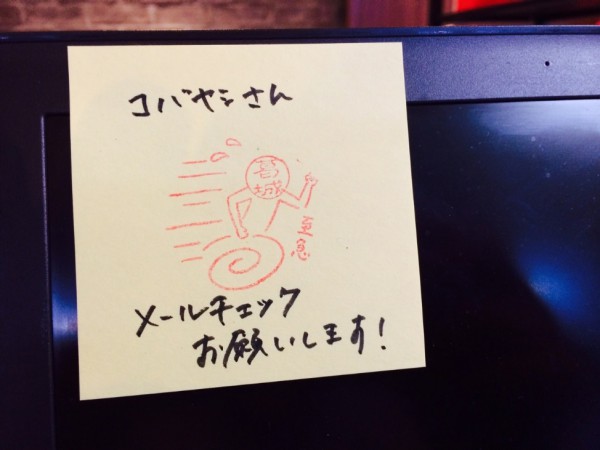 コバヤシさん
葛城
至急
メールチェック
お願いします!